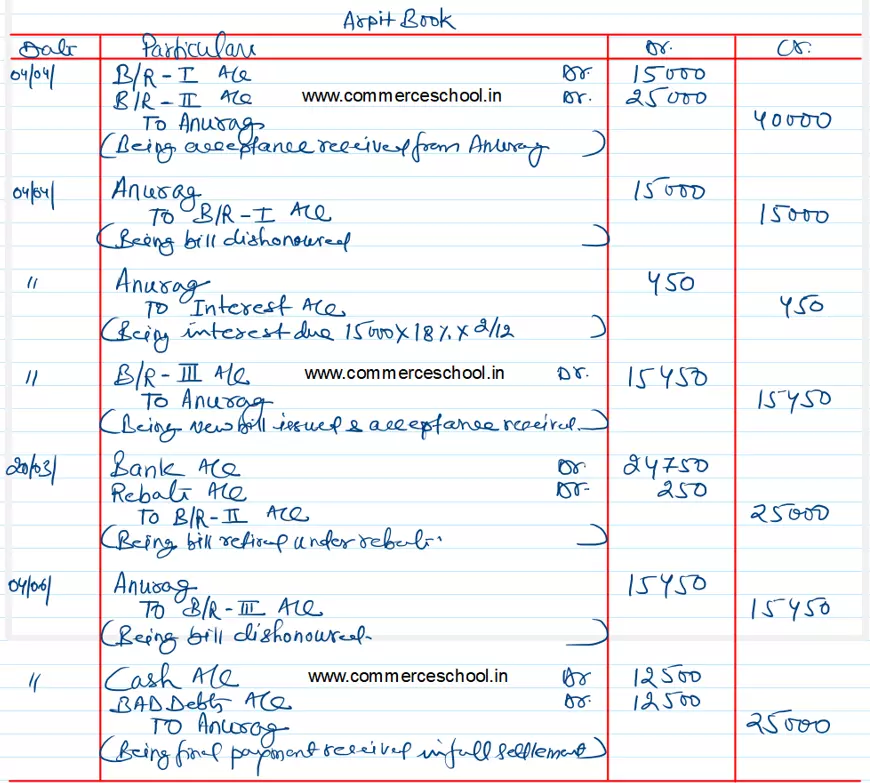 Arpit Book
Date Particulars Dr. Cr.
04/04/ B/R - I A/c Dr. 15000
B/R - II A/c www.commerceschool.in Dr. 25000
To Anurag 40000
(Being acceptance received from Anurag)
04/04/ Anurag 15000
To B/R - I A/c 15000
(Being bill dishonoured)
" Anurag 450
To Interest A/c 450
(Being interest due 15000 X 18% X 2/12)
" B/R - III A/c www.commerceschool.in Dr. 15450
To Anurag 15450
(Being new bill issued & acceptance received.)
20/03/ Bank A/c Dr. 24750
Rebate A/c Dr- 250
To B/R - II A/c 25000
(Being bill retired under rebate.)
04/06/ Anurag 15450
To B/R - III A/c 15450
(Being bill dishonoured.)
" Cash A/c www.commerceschool.in Dr 12500
BAD Debts A/c Dr. 12500
To Anurag 25000
(Being final payment received in full settlement)